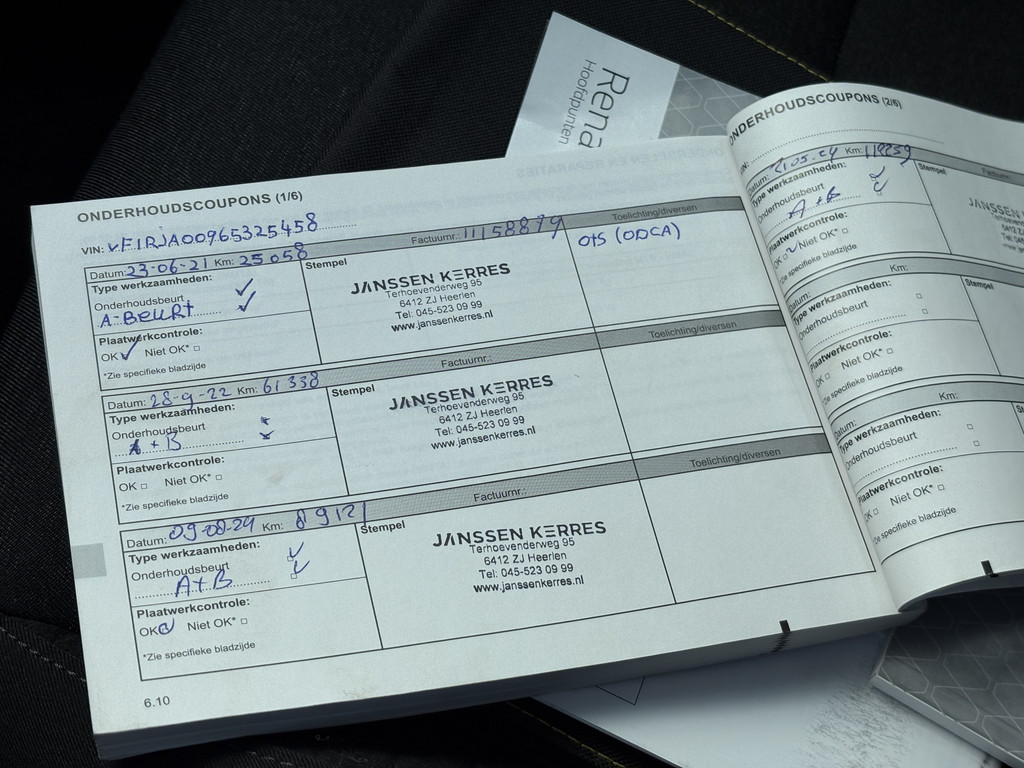 Rena
Hoofdpunten
ONDERHOUDSCOUPONS (1/6)
VIN: VF1RJA00965325458
Datum: 23-06-21 Km: 25058
Factuurnr.: 11158879
Toelichting/diversen
Type werkzaamheden:
Onderhoudsbeurt ✓
A-BEURT ✓
Plaatwerkcontrole:
OK ✓ Niet OK* □
*Zie specifieke bladzijde
Stempel
JANSSEN KERRES
Terhoevenderweg 95
6412 ZJ Heerlen
Tel: 045-523 09 99
www.janssenkerres.nl
OTS (ODCA)
Datum: 28-9-22 Km: 61338
Factuurnr.:
Toelichting/diversen
Type werkzaamheden:
Onderhoudsbeurt
A + B
Plaatwerkcontrole:
OK □ Niet OK* □
*Zie specifieke bladzijde
Stempel
JANSSEN KERRES
Terhoevenderweg 95
6412 ZJ Heerlen
Tel: 045-523 09 99
www.janssenkerres.nl
Datum: Km: 89121
Factuurnr.:
Toelichting/diversen
Type werkzaamheden:
Onderhoudsbeurt ✓
A+B ✓
Plaatwerkcontrole:
OK Niet OK* □
*Zie specifieke bladzijde
Stempel
JANSSEN KERRES
Terhoevenderweg 95
6412 ZJ Heerlen
Tel: 045-523 09 99
www.janssenkerres.nl
6.10
ONDERHOUDSCOUPONS (2/6)
Datum: Km:
Type werkzaamheden:
Onderhoudsbeurt
A+B
Plaatwerkcontrole:
OK Niet OK* □
Zie specifieke bladzijde
Stempel
Datum: Km:
Type werkzaamheden:
Onderhoudsbeurt □
Plaatwerkcontrole:
OK □ Niet OK* □
Zie specifieke bladzijde
Stempel
Datum: Km:
Type werkzaamheden:
Onderhoudsbeurt □
Plaatwerkcontrole:
OK □ Niet OK* □
Zie specifieke bladzijde
Stempel